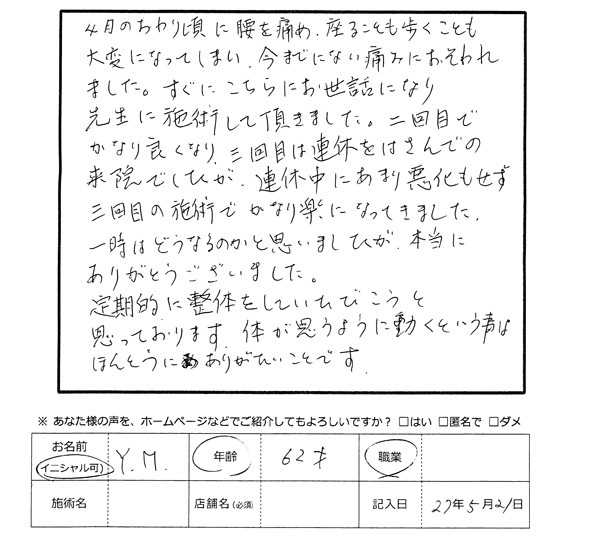 4月のおわり頃に腰を痛め、座ることも歩くことも
大変になってしまい、今までにない痛みにおそわれ
ました。すぐにこちらにお世話になり
先生に施術して頂きました。二回目で
かなり良くなり、三回目は連休をはさんでの
来院でしたが、連休中にあまり悪化もせず
三回目の施術でかなり楽になってきました。
一時はどうなるのかと思いましたが、本当に
ありがとうございました。
定期的に整体をしていただこうと
思っております。体が思うように動くという事は
ほんとうにありがたいことです。
※ あなた様の声を、ホームページなどでご紹介してもよろしいですか？ □はい □匿名で □ダメ
お名前 (イニシャル可) Y.M. 年齢 62才 職業
施術名 店舗名(必須) 記入日 27年5月21日